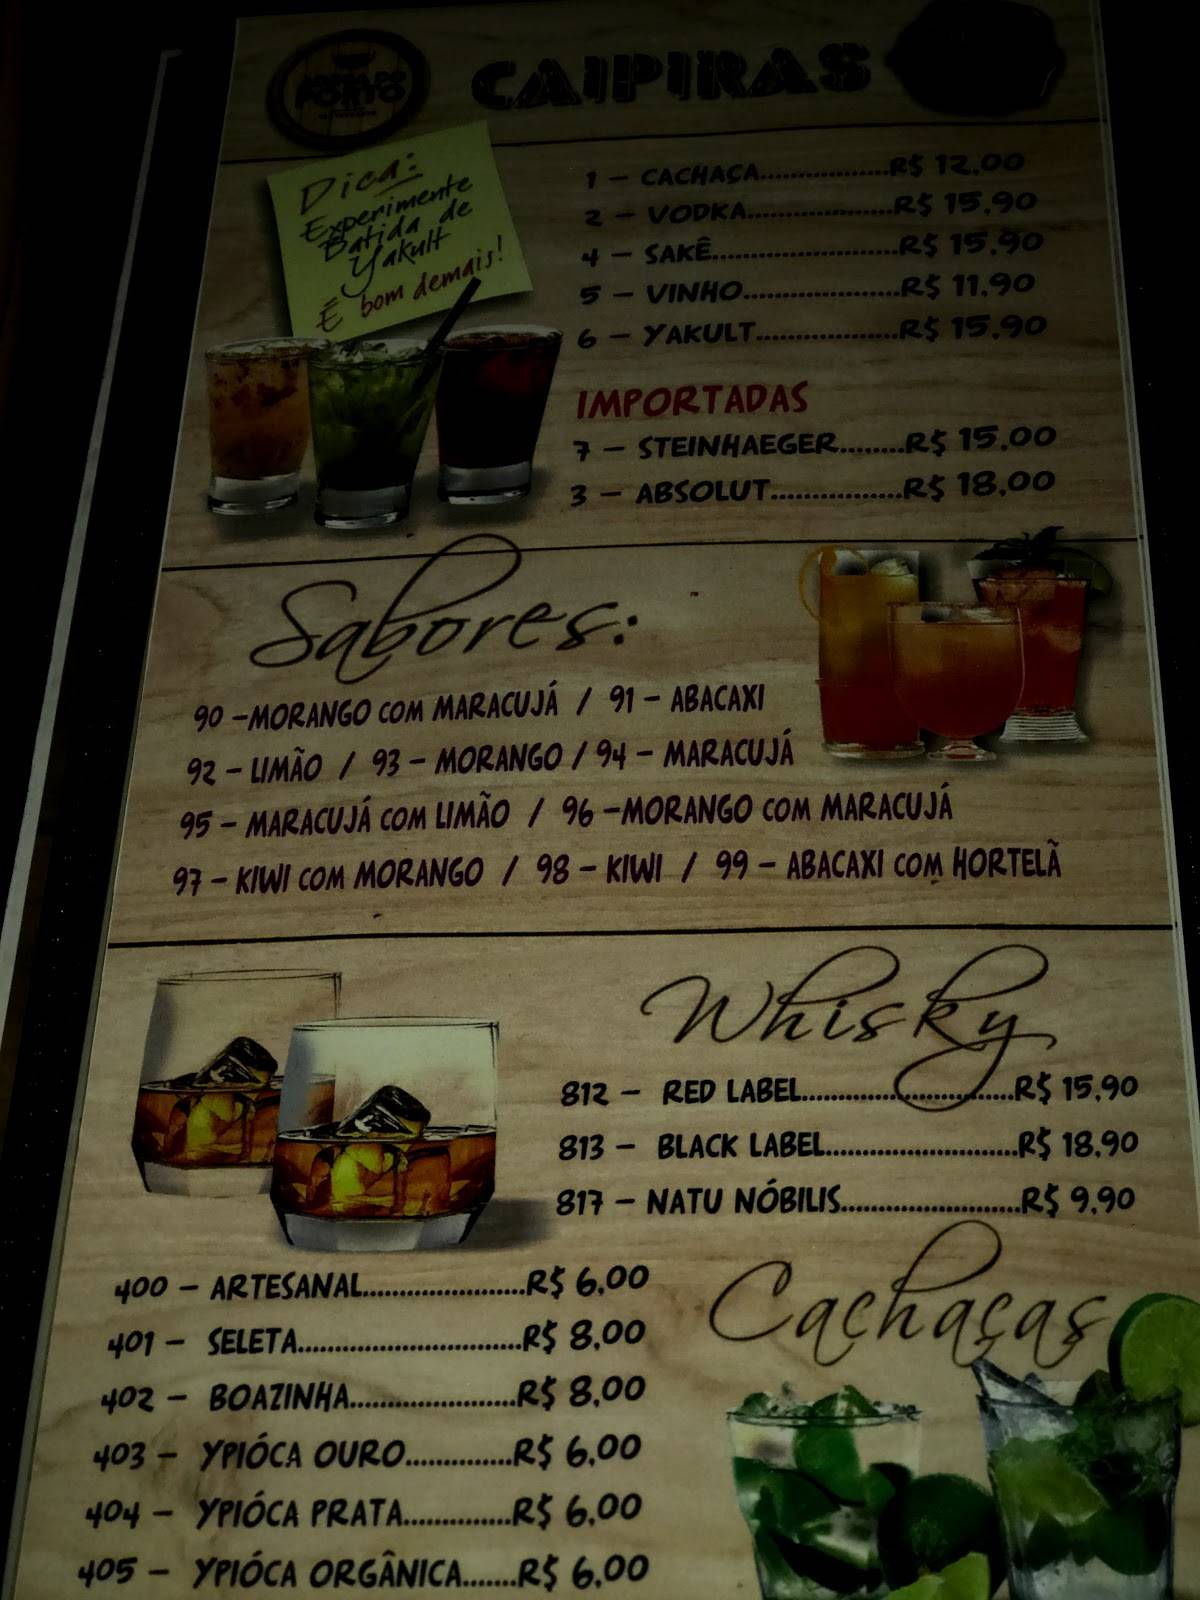 PORTO
CAIPIRAS
Dica:
Experimente
Batida de
Yakult
É bom demais!
1 – CACHAÇA.................R$ 12,00
2 – VODKA....................R$ 15,90
4 – SAKÊ.........................R$ 15,90
5 – VINHO.....................R$ 11,90
6 – YAKULT...................R$ 15,90
IMPORTADAS
7 – STEINHAEGER........R$ 15,00
3 – ABSOLUT.................R$ 18,00
Sabores:
90 –MORANGO COM MARACUJÁ / 91 – ABACAXI
92 – LIMÃO / 93 – MORANGO / 94 – MARACUJÁ
95 – MARACUJÁ COM LIMÃO / 96 –MORANGO COM MARACUJÁ
97 – KIWI COM MORANGO / 98 – KIWI / 99 – ABACAXI COM HORTELÃ
Whisky
812 – RED LABEL.............................R$ 15,90
813 – BLACK LABEL..........................R$ 18,90
817 – NATU NÓBILIS........................R$ 9,90
Cachaças
400 – ARTESANAL......................R$ 6,00
401 – SELETA..............................R$ 8,00
402 – BOAZINHA.......................R$ 8,00
403 – YPIÓCA OURO..............R$ 6,00
404 – YPIÓCA PRATA..............R$ 6,00
405 – YPIÓCA ORGÂNICA.......R$ 6,00